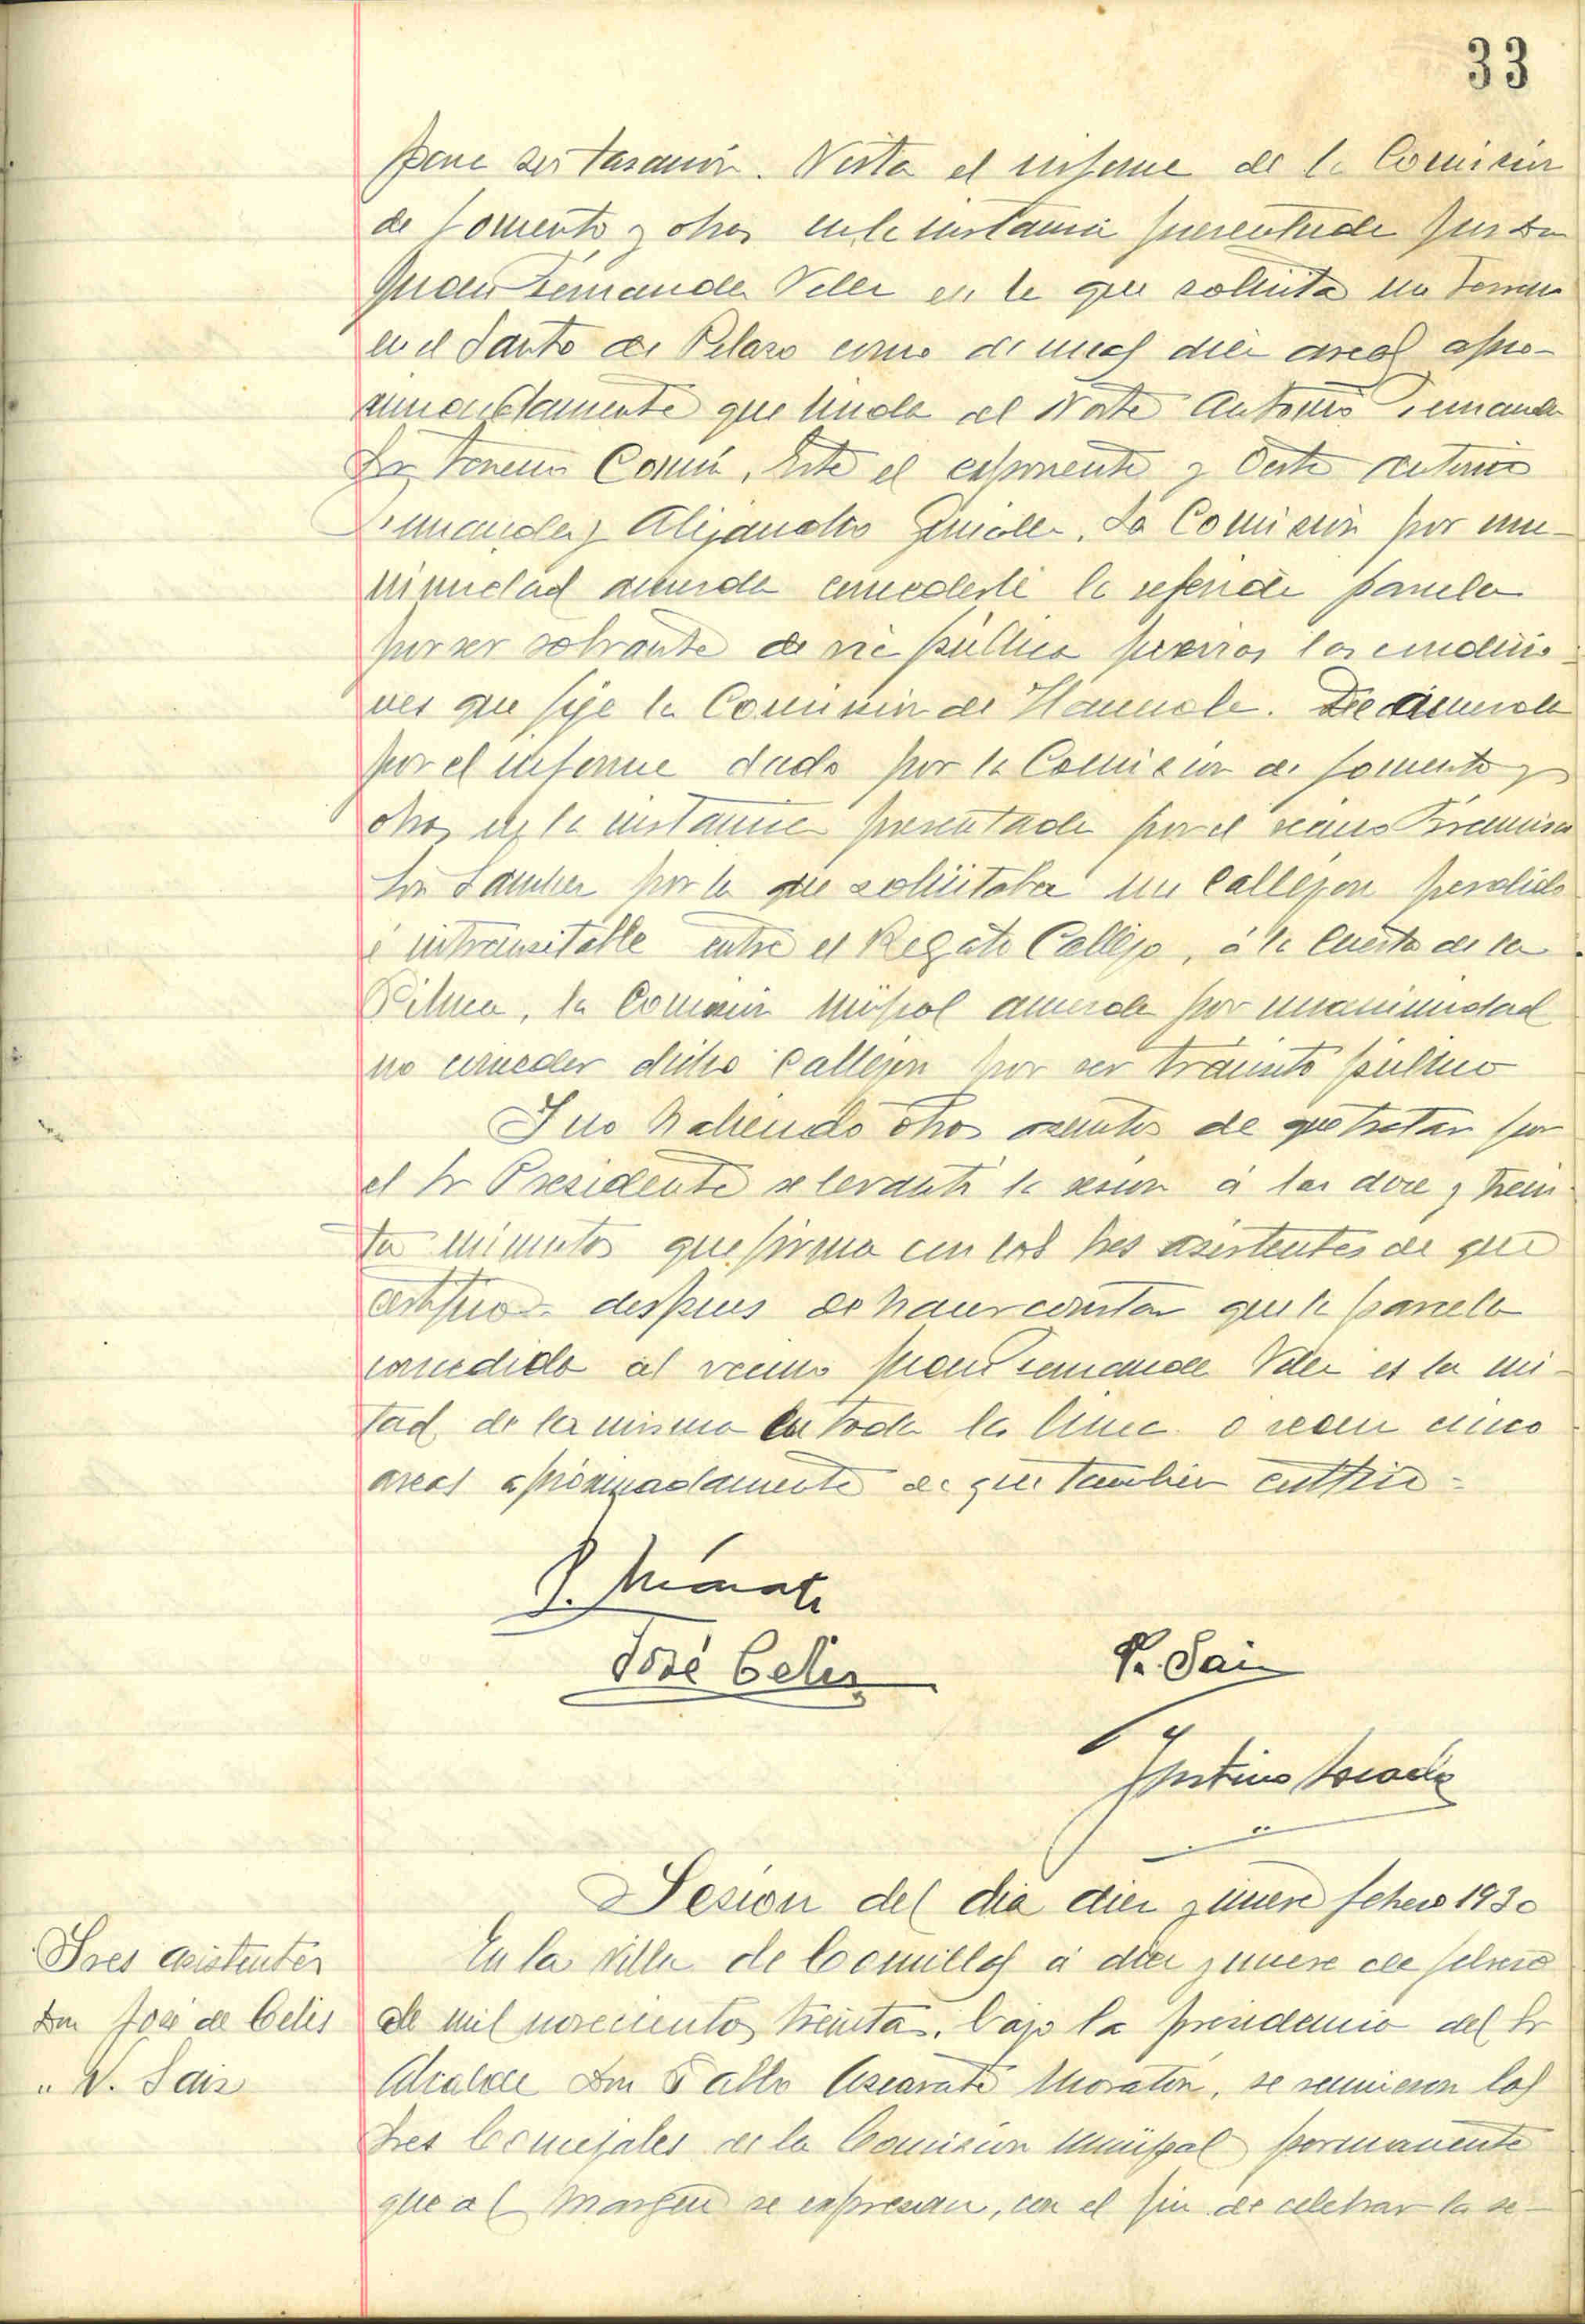 33
para su tasación. Vista el informe de la Comisión
de fomento y obras en la instancia presentada por Don
Juan Fernandez Velez en la que solicita un terreno
en el Santo de Pelazo como de unas diez areas apro-
ximadamente que linda al Norte Antonio Fernandez
Sur terreno Común, Este el exponente y Oeste Antonio
Fernandez y Alejandro González. La Comisión por una-
nimidad acuerda concederle la referida parcela
por ser sobrante de via pública previas las condicio-
nes que fije la Comisión de Hacienda. De acuerdo
por el informe dado por la Comisión de fomento y
obras en la instancia presentada por el vecino Francisco
Sanchez por la que solicitaba un callejon perdido
é intransitable entre el Regato Callejo, á la Cuesta de la
la Comisión mûpal acuerda por unanimidad
no conceder dicho callejon por ser tránsito público
Y no habiendo otros asuntos de que tratar por
el Sr Presidente se levantó la sesión á las doce y trein
ta minutos que firma con los Sres asistentes de que
certifico = despues de hacer constar que la parcela
concedida al vecino Juan Fernandez Velez es la mi-
tad de la misma en toda la linea o sean cinco
areas aproximadamente de que tambien certifico =
José Celis
V. Saiz
Justino
Sesión del dia diez y nueve febrero 1930
Sres asistentes
Don José de Celis
" V. Saiz
En la Villa de Comillas á diez y nueve de febrero
de mil novecientos treinta, bajo la presidencia del Sr
Alcalde Don Pablo Ascarate Moratón, se reunieron los
Sres Concejales de la Comisión Munîpal permanente
que al margen se expresan, con el fin de celebrar la se-